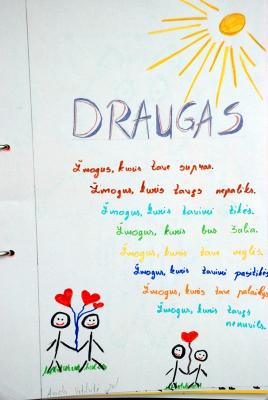 DRAUGAS
Žmogus, kuris tave supras.
Žmogus, kuris tavęs nepaliks.
Žmogus, kuris tavimi tikės.
Žmogus, kuris bus šalia.
Žmogus, kuris tave mylės.
Žmogus, kuris tavimi pasitikės
Žmogus, kuris tave palaikys
Žmogus, kuris tavęs
nenuvils.